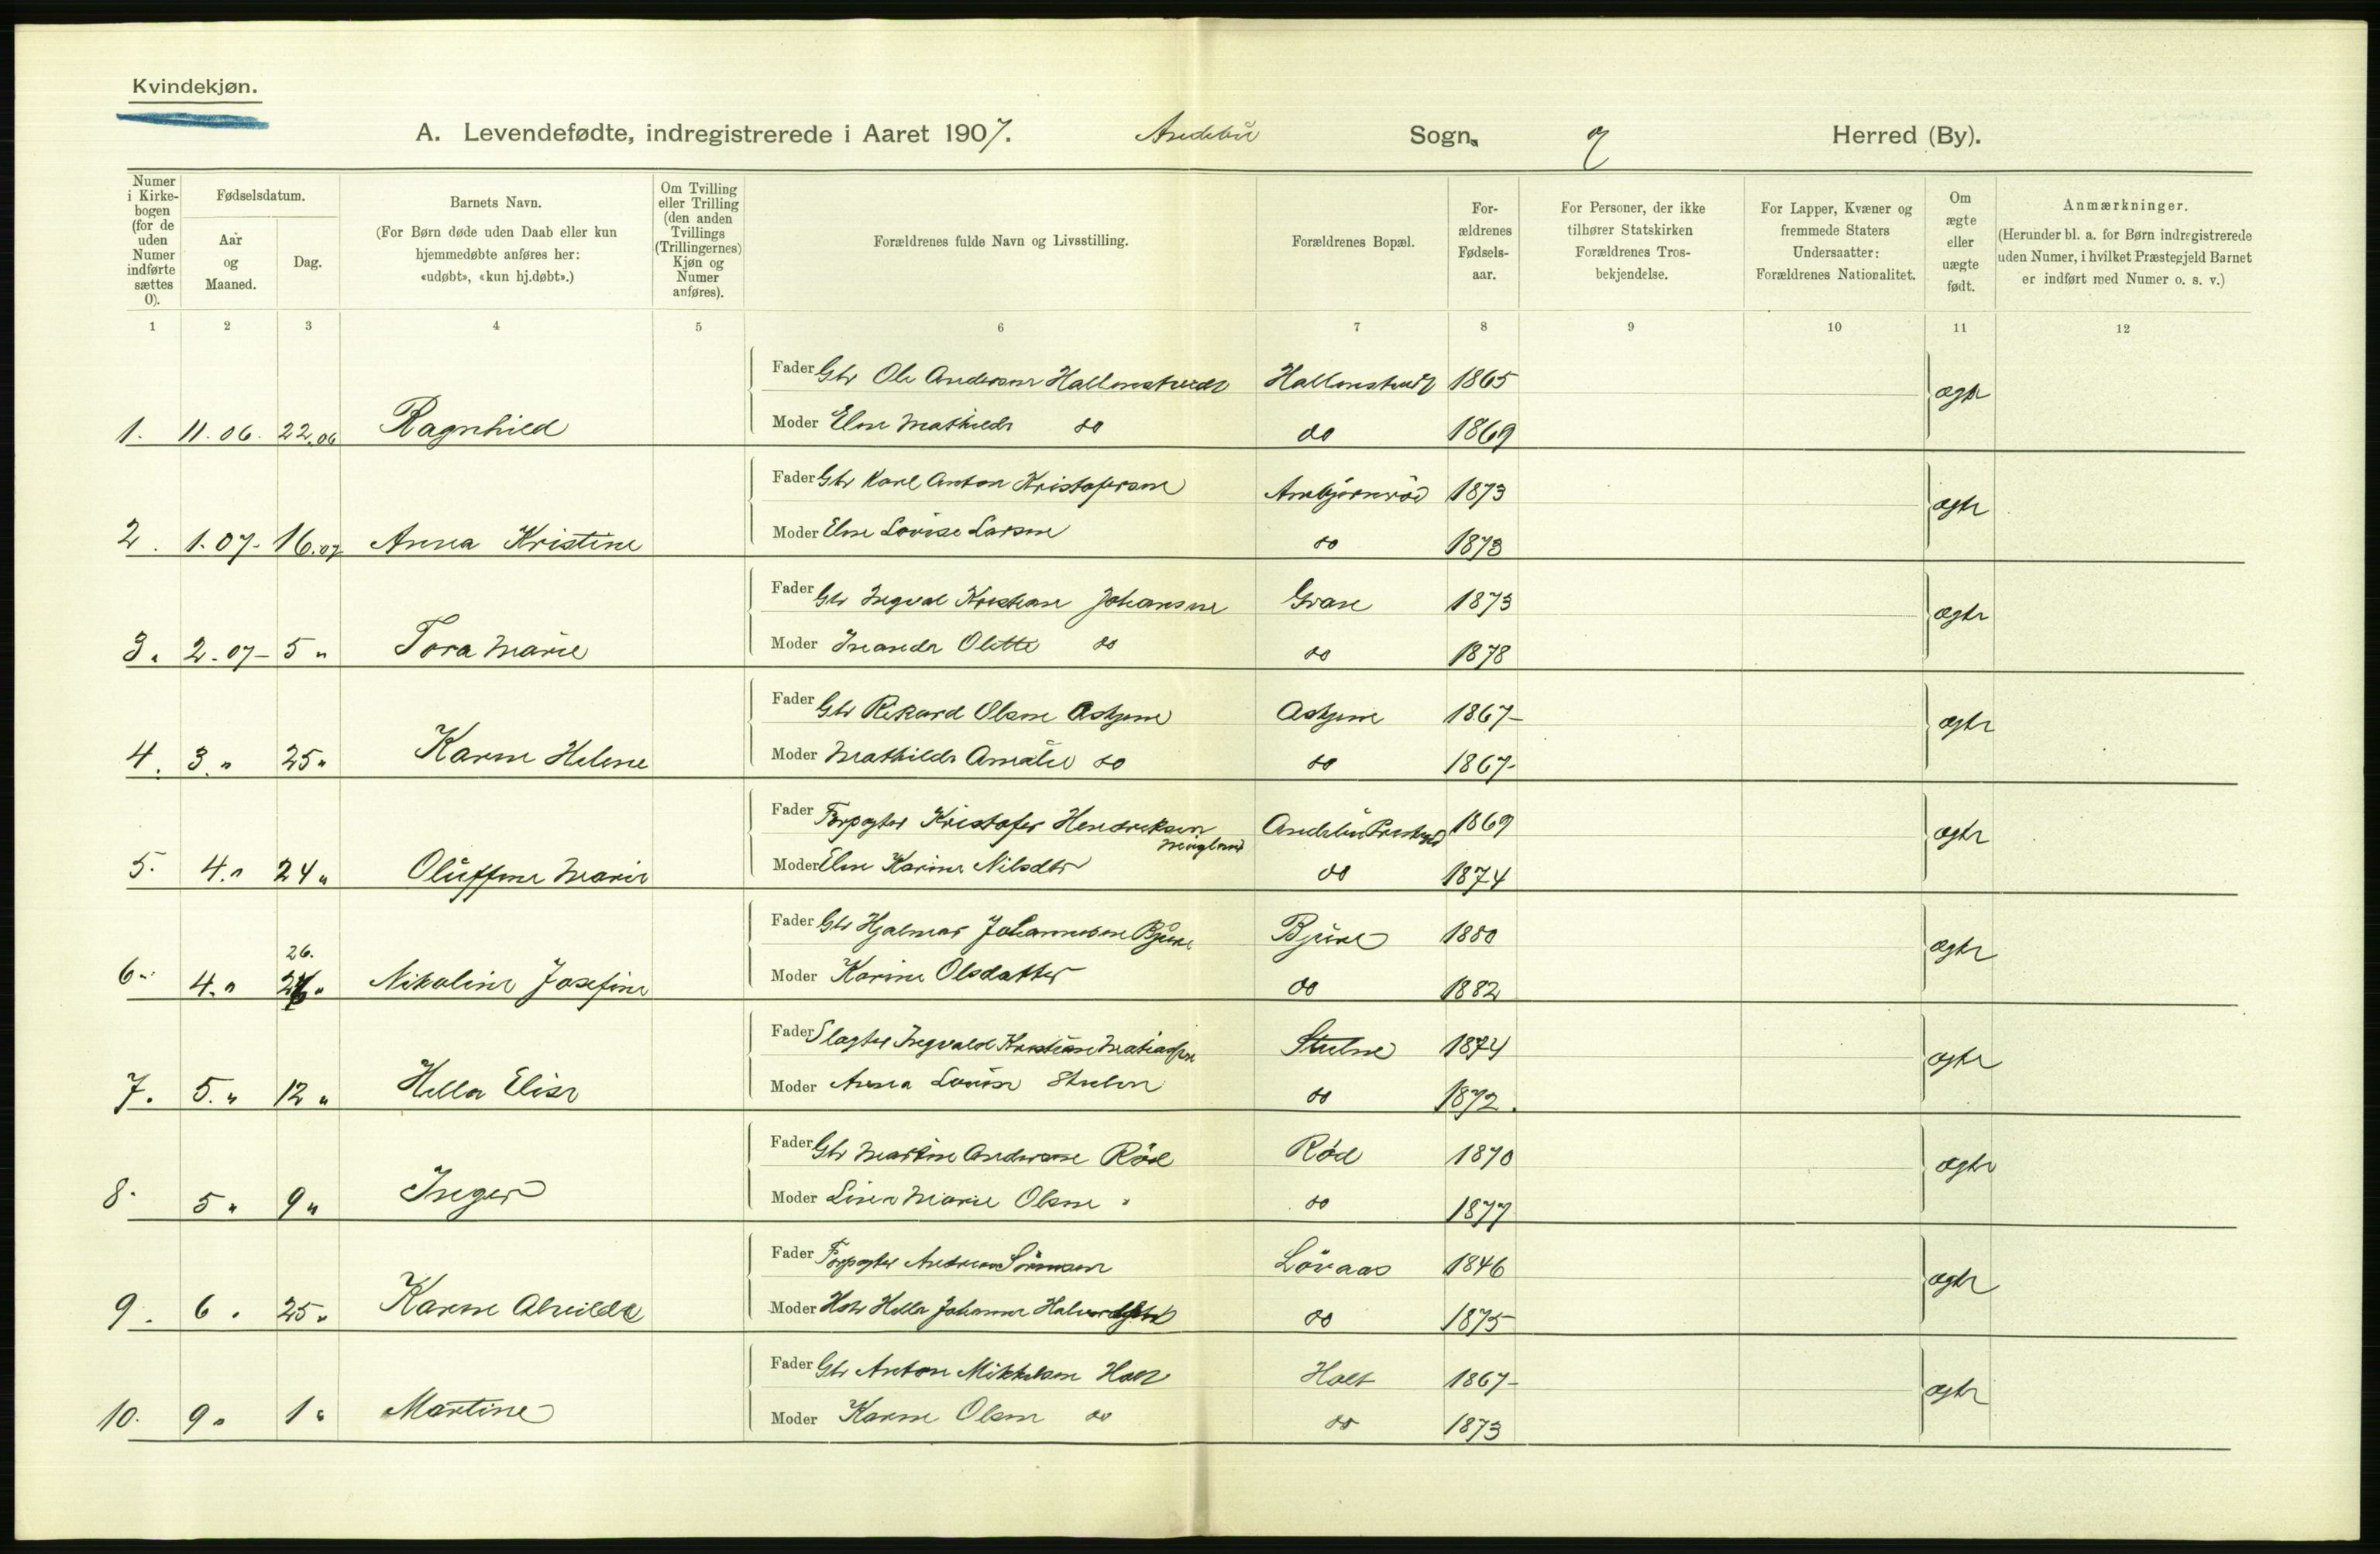 Kvindekjøn.
A. Levendefødte, indregistrerede i Aaret 1907. Andebu Sogn. og Herred (By).
Numer i Kirkebogen (for de uden Numer indførte sættes 0).
Fødselsdatum.
Aar og Maaned.
Dag.
Barnets Navn.
(For Børn døde uden Daab eller kun hjemmedøbte anføres her: «udøbt», «kun hj.døbt».)
Om Tvilling eller Trilling (den anden Tvillings (Trillingernes) Kjøn og Numer anføres).
Forældrenes fulde Navn og Livsstilling.
Forældrenes Bopæl.
Forældrenes Fødselsaar.
For Personer, der ikke tilhører Statskirken Forældrenes Trosbekjendelse.
For Lapper, Kvæner og fremmede Staters Undersaatter: Forældrenes Nationalitet.
Om ægte eller uægte født.
Anmærkninger.
(Herunder bl. a. for Børn indregistrerede uden Numer, i hvilket Præstegjeld Barnet er indført med Numer o. s. v.)
1 2 3 4 5 6 7 8 9 10 11 12
Fader Gbr Ole Andersen Hallenstvedt Hallenstvedt 1865 ægte
1. 11.06. 22.06 Ragnhild Moder Elen Mathilde do do 1869
Fader Gbr Karl Anton Kristofersen Anbjørnrød 1873 ægte
2. 1.07- 16.07 Anna Kristine Moder Elen Lovise Larsen do 1873
Fader Gbr Ingval Kristian Johansen Gran 1873 ægte
3. 2.07- 5 " Tora Marie Moder Inanda Olette do do 1878
Fader Gbr Rikard Olsen Askjem Askjem 1867- ægte
4. 3. " 25 " Karen Helene Moder Mathilde Amalie do do 1867-
Fader Forpagter Kristofer Hendriksen Andebu Prestegd 1869 ægte
5. 4. " 24 " Oluffine Marie Moder Elen Karine Nilsdtr do 1874
Fader Gbr Hjalmar Johannesen Bjure Bjure 1880 ægte
26.
6. 4. " 26 " Nikoline Josefine Moder Karine Olsdatter do 1882
Fader Slagter Ingvald Kristian Matiassen Stulen 1874 ægte
7. 5. " 12 " Hella Elise Moder Anna Lovise Stulen do 1872.
Fader Gbr Martin Andersen Rød Rød 1870 ægte
8. 5 " 9 " Inger Moder Lina Marie Olsen " do 1877
Fader Forpagter Andreas Sörensen Lövaas 1846 ægte
9. 6 " 25 " Karen Alvilde Moder Hella Johanne do 1875
Fader Gbr Anton Mikkelsen Holt Holt 1867- ægte
10. 9 " 1 " Martine Moder Karen Olsen do do 1873